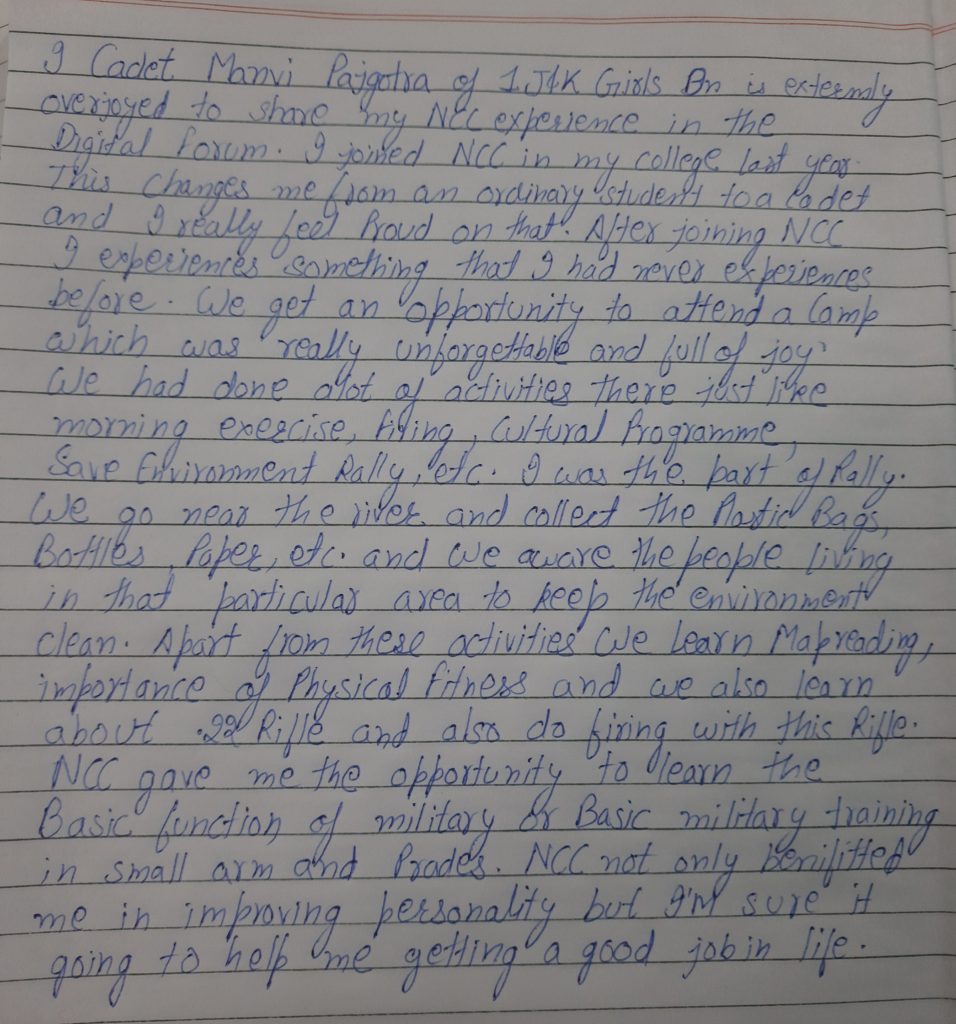 I Cadet Manvi Pajgotra of 1 J&K Girls Bn is extermly
overjoyed to share my NCC experience in the
Digital Forum. I joined NCC in my college last year.
This Changes me from an ordinary student to a Cadet
and I really feel Proud on that. After joining NCC
I experiences something that I had never experiences
before. We get an opportunity to attend a Camp
which was really unforgettable and full of joy
We had done alot of activities there just like
morning exercise, firing, Cultural Programme,
Save Environment Rally, etc. I was the part of Rally.
We go near the river and collect the Plastic Bags,
Bottles, Paper, etc. and we aware the people living
in that particular area to keep the environment
clean. Apart from these activities we learn Mapreading,
importance of Physical fitness and we also learn
about .22 Rifle and also do firing with this Rifle.
NCC gave me the opportunity to learn the
Basic function of military or Basic military training
in small arm and Prades. NCC not only benifitted
me in improving personality but I'm sure it
going to help me getting a good job in life.